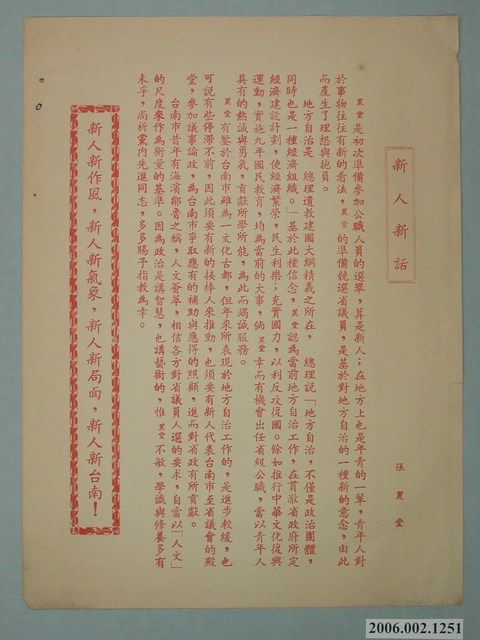 新人新話
張麗堂
麗堂是初次準備參加公職人員的選舉，算是新人；在地方上也是年青的一輩，青年人對
於事物往往有新的看法，麗堂的準備競選省議員，是基於對地方自治的一種新的意念，由此
而產生了理想與抱負。
地方自治是　總理遺教建國大綱精義之所在，　總理說「地方自治，不僅是政治團體，
同時也是一種經濟組織。」基於此種信念，麗堂認為當前地方自治工作，在貫澈省政府所定
經濟建設計劃，使經濟繁榮，民生利樂；充實國力，以利反攻復國。餘如推行中華文化復興
運動，實施九年國民教育，均為當前的大事，倘麗堂幸而有機會出任省級公職，當以青年人
具有的熱誠與勇氣，貢獻所學所能，為此而竭誠服務。
麗堂有鑒於台南市雖為一文化古都，但年來所表現於地方自治工作的，是進步較緩，也
可說有些停滯不前，因此須要有新的接棒人來推動，也須要有新人代表台南市至省議會的殿
堂，參加議事論政，為台南市爭取應有的補助與應得的照顧，進而對省政有所貢獻。
台南市昔年有海濱鄒魯之稱，人文薈萃，相信各方對省議員人選的要求，自當以「人文」
的尺度來作為衡量的基準。因為政治是講智慧，也講藝術的，惟麗堂不敏，學識與修養多有
未孚，尚祈黨內先進同志，多多賜予指教為幸。
新人新作風，新人新氣象，新人新局面，新人新台南！
2006.002.1251